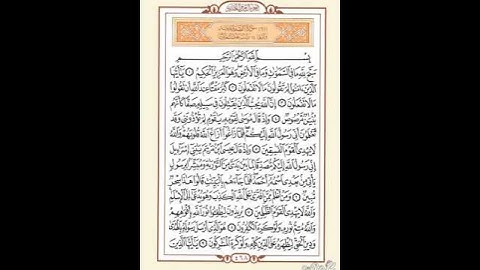 بِسْمِ اللَّهِ الرَّحْمَٰنِ الرَّحِيمِ
سَبَّحَ لِلَّهِ مَا فِي السَّمَٰوَٰتِ وَمَا فِي الْأَرْضِ وَهُوَ الْعَزِيزُ الْحَكِيمُ ۝ يَٰٓأَيُّهَا
الَّذِينَ ءَامَنُوا لِمَ تَقُولُونَ مَا لَا تَفْعَلُونَ ۝ كَبُرَ مَقْتًا عِندَ اللَّهِ أَن تَقُولُوا
مَا لَا تَفْعَلُونَ ۝ إِنَّ اللَّهَ يُحِبُّ الَّذِينَ يُقَٰتِلُونَ فِي سَبِيلِهِ صَفًّا كَأَنَّهُم
بُنْيَٰنٌ مَّرْصُوصٌ ۝ وَإِذْ قَالَ مُوسَىٰ لِقَوْمِهِ يَٰقَوْمِ لِمَ تُؤْذُونَنِي وَقَد
تَّعْلَمُونَ أَنِّي رَسُولُ اللَّهِ إِلَيْكُمْ فَلَمَّا زَاغُوا أَزَاغَ اللَّهُ قُلُوبَهُمْ وَاللَّهُ
لَا يَهْدِي الْقَوْمَ الْفَٰسِقِينَ ۝ وَإِذْ قَالَ عِيسَى ابْنُ مَرْيَمَ يَٰبَنِي إِسْرَٰٓءِيلَ
إِنِّي رَسُولُ اللَّهِ إِلَيْكُم مُّصَدِّقًا لِّمَا بَيْنَ يَدَيَّ مِنَ التَّوْرَىٰةِ وَمُبَشِّرًا بِرَسُولٍ
يَأْتِي مِن بَعْدِي اسْمُهُ أَحْمَدُ فَلَمَّا جَآءَهُم بِالْبَيِّنَٰتِ قَالُوا هَٰذَا سِحْرٌ
مُّبِينٌ ۝ وَمَنْ أَظْلَمُ مِمَّنِ افْتَرَىٰ عَلَى اللَّهِ الْكَذِبَ وَهُوَ يُدْعَىٰٓ إِلَى الْإِسْلَٰمِ
وَاللَّهُ لَا يَهْدِي الْقَوْمَ الظَّٰلِمِينَ ۝ يُرِيدُونَ لِيُطْفِـُٔوا نُورَ اللَّهِ بِأَفْوَٰهِهِمْ
وَاللَّهُ مُتِمُّ نُورِهِ وَلَوْ كَرِهَ الْكَٰفِرُونَ ۝ هُوَ الَّذِي أَرْسَلَ رَسُولَهُ بِالْهُدَىٰ
وَدِينِ الْحَقِّ لِيُظْهِرَهُ عَلَى الدِّينِ كُلِّهِ وَلَوْ كَرِهَ الْمُشْرِكُونَ ۝ يَٰٓأَيُّهَا الَّذِينَ